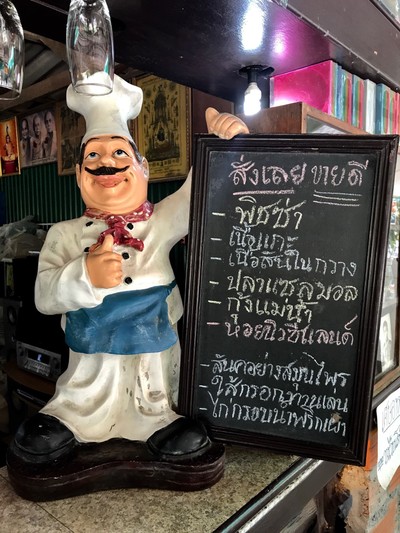 สั่งเลย ขายดี
- พิซซ่า
- เนื้อแกะ
- เนื้อสันในกวาง
- ปลาแซลมอล
- กุ้งแม่น้ำ
- หอยนิวซีแลนด์
- ลิ้นย่างสมุนไพร
- ไส้กรอกทานเล่น
- ไก่กรอบน้ำพริกเผา